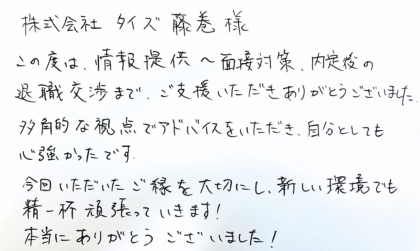 株式会社 タイズ 藤巻 様
この度は、情報提供〜面接対策、内定後の
退職交渉まで、ご支援いただきありがとうございました。
多角的な視点でアドバイスをいただき、自分としても
心強かったです。
今回いただいたご縁を大切にし、新しい環境でも
精一杯頑張っていきます！
本当にありがとうございました！